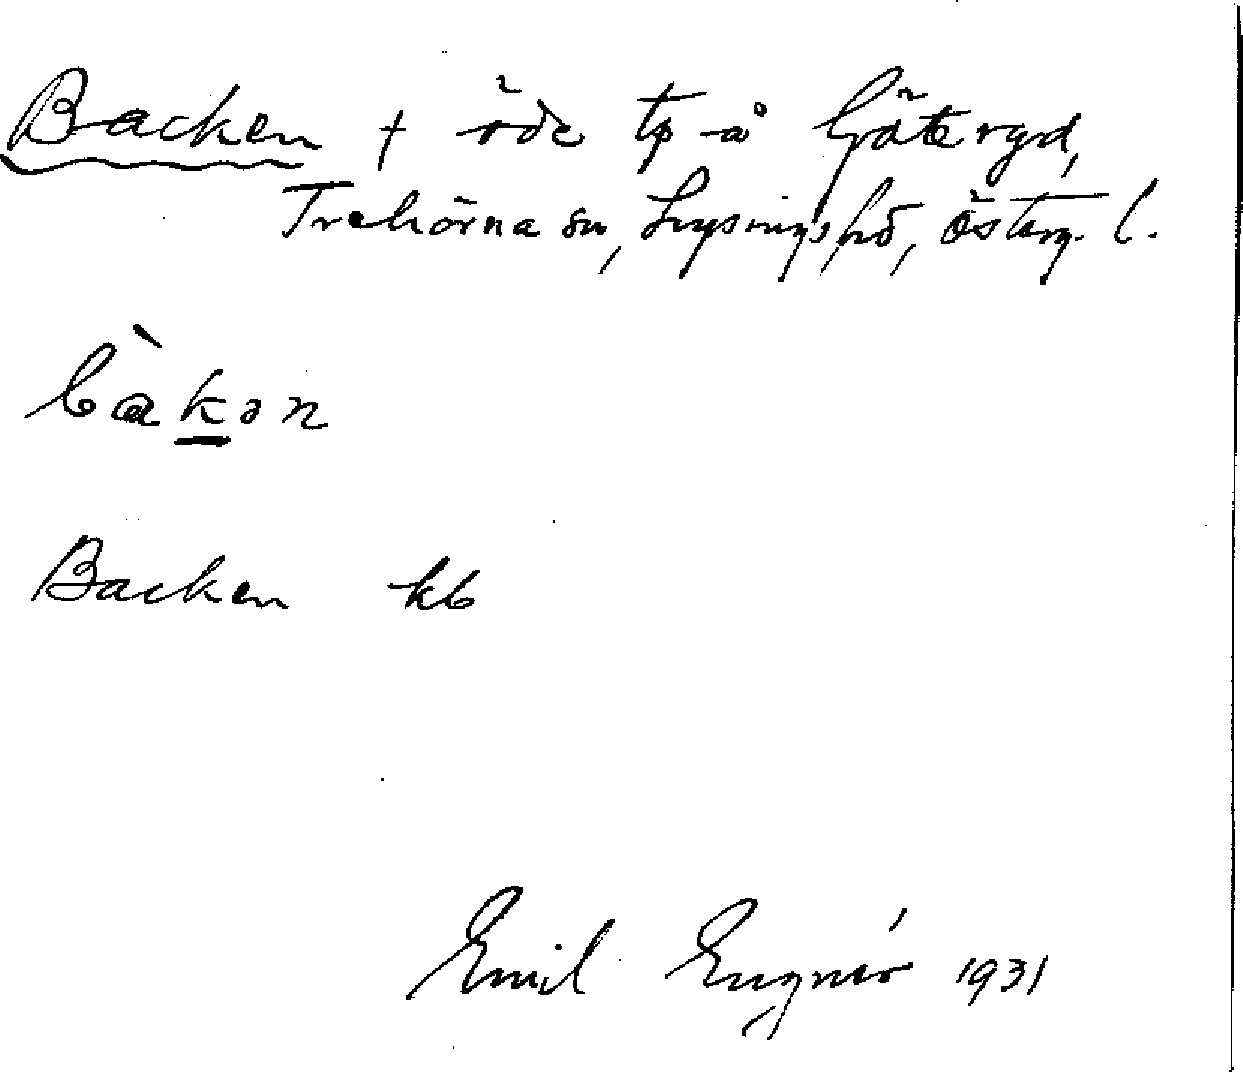 Backen + öde tp å Göteryd,
Trehörna sn, Lysings hd, Österg. l.
bàkən
Backen kb
Emil Engnér 1931